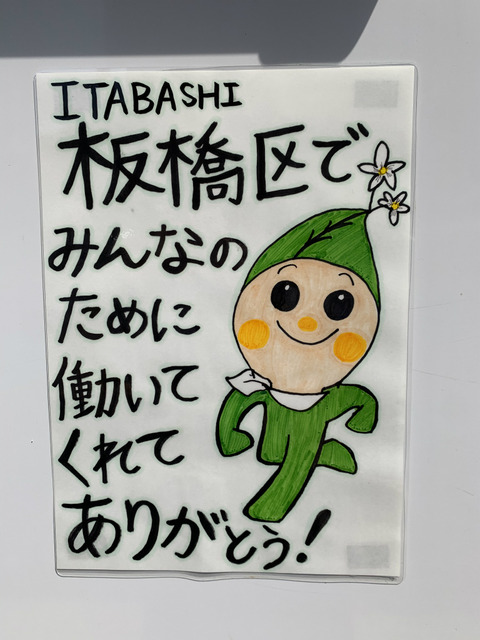 ITABASHI
板橋区で
みんなの
ために
働いて
くれて
ありがとう!